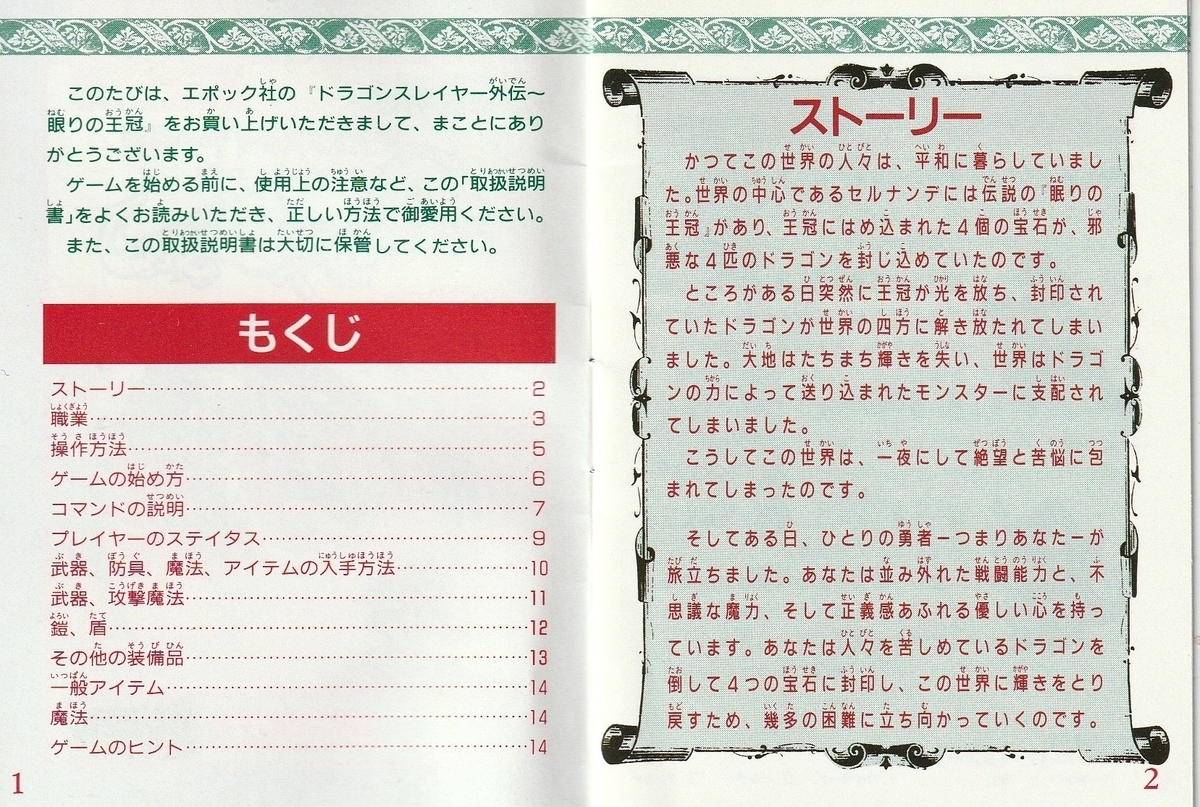 このたびは、エポック社の『ドラゴンスレイヤー外伝～
眠りの王冠』をお買い上げいただきまして、まことにあり
がとうございます。
ゲームを始める前に、使用上の注意など、この「取扱説明
書」をよくお読みいただき、正しい方法で御愛用ください。
また、この取扱説明書は大切に保管してください。
もくじ
ストーリー……………………2
職業……………………3
操作方法……………………5
ゲームの始め方……………………6
コマンドの説明……………………7
プレイヤーのステイタス……………………9
武器、防具、魔法、アイテムの入手方法……………………10
武器、攻撃魔法……………………11
鎧、盾……………………12
その他の装備品……………………13
一般アイテム……………………14
魔法……………………14
ゲームのヒント……………………14
1
ストーリー
かつてこの世界の人々は、平和に暮らしていまし
た。世界の中心であるセルナンデには伝説の『眠りの
王冠』があり、王冠にはめ込まれた4個の宝石が、邪
悪な4匹のドラゴンを封じ込めていたのです。
ところがある日突然に王冠が光を放ち、封印され
ていたドラゴンが世界の四方に解き放たれてしまい
ました。大地はたちまち輝きを失い、世界はドラゴ
ンの力によって送り込まれたモンスターに支配され
てしまいました。
こうしてこの世界は、一夜にして絶望と苦悩に包
まれてしまったのです。
そしてある日、ひとりの勇者ーつまりあなたーが
旅立ちました。あなたは並み外れた戦闘能力と、不
思議な魔力、そして正義感あふれる優しい心を持っ
ています。あなたは人々を苦しめているドラゴンを
倒して4つの宝石に封印し、この世界に輝きをとり
戻すため、幾多の困難に立ち向かっていくのです。
2